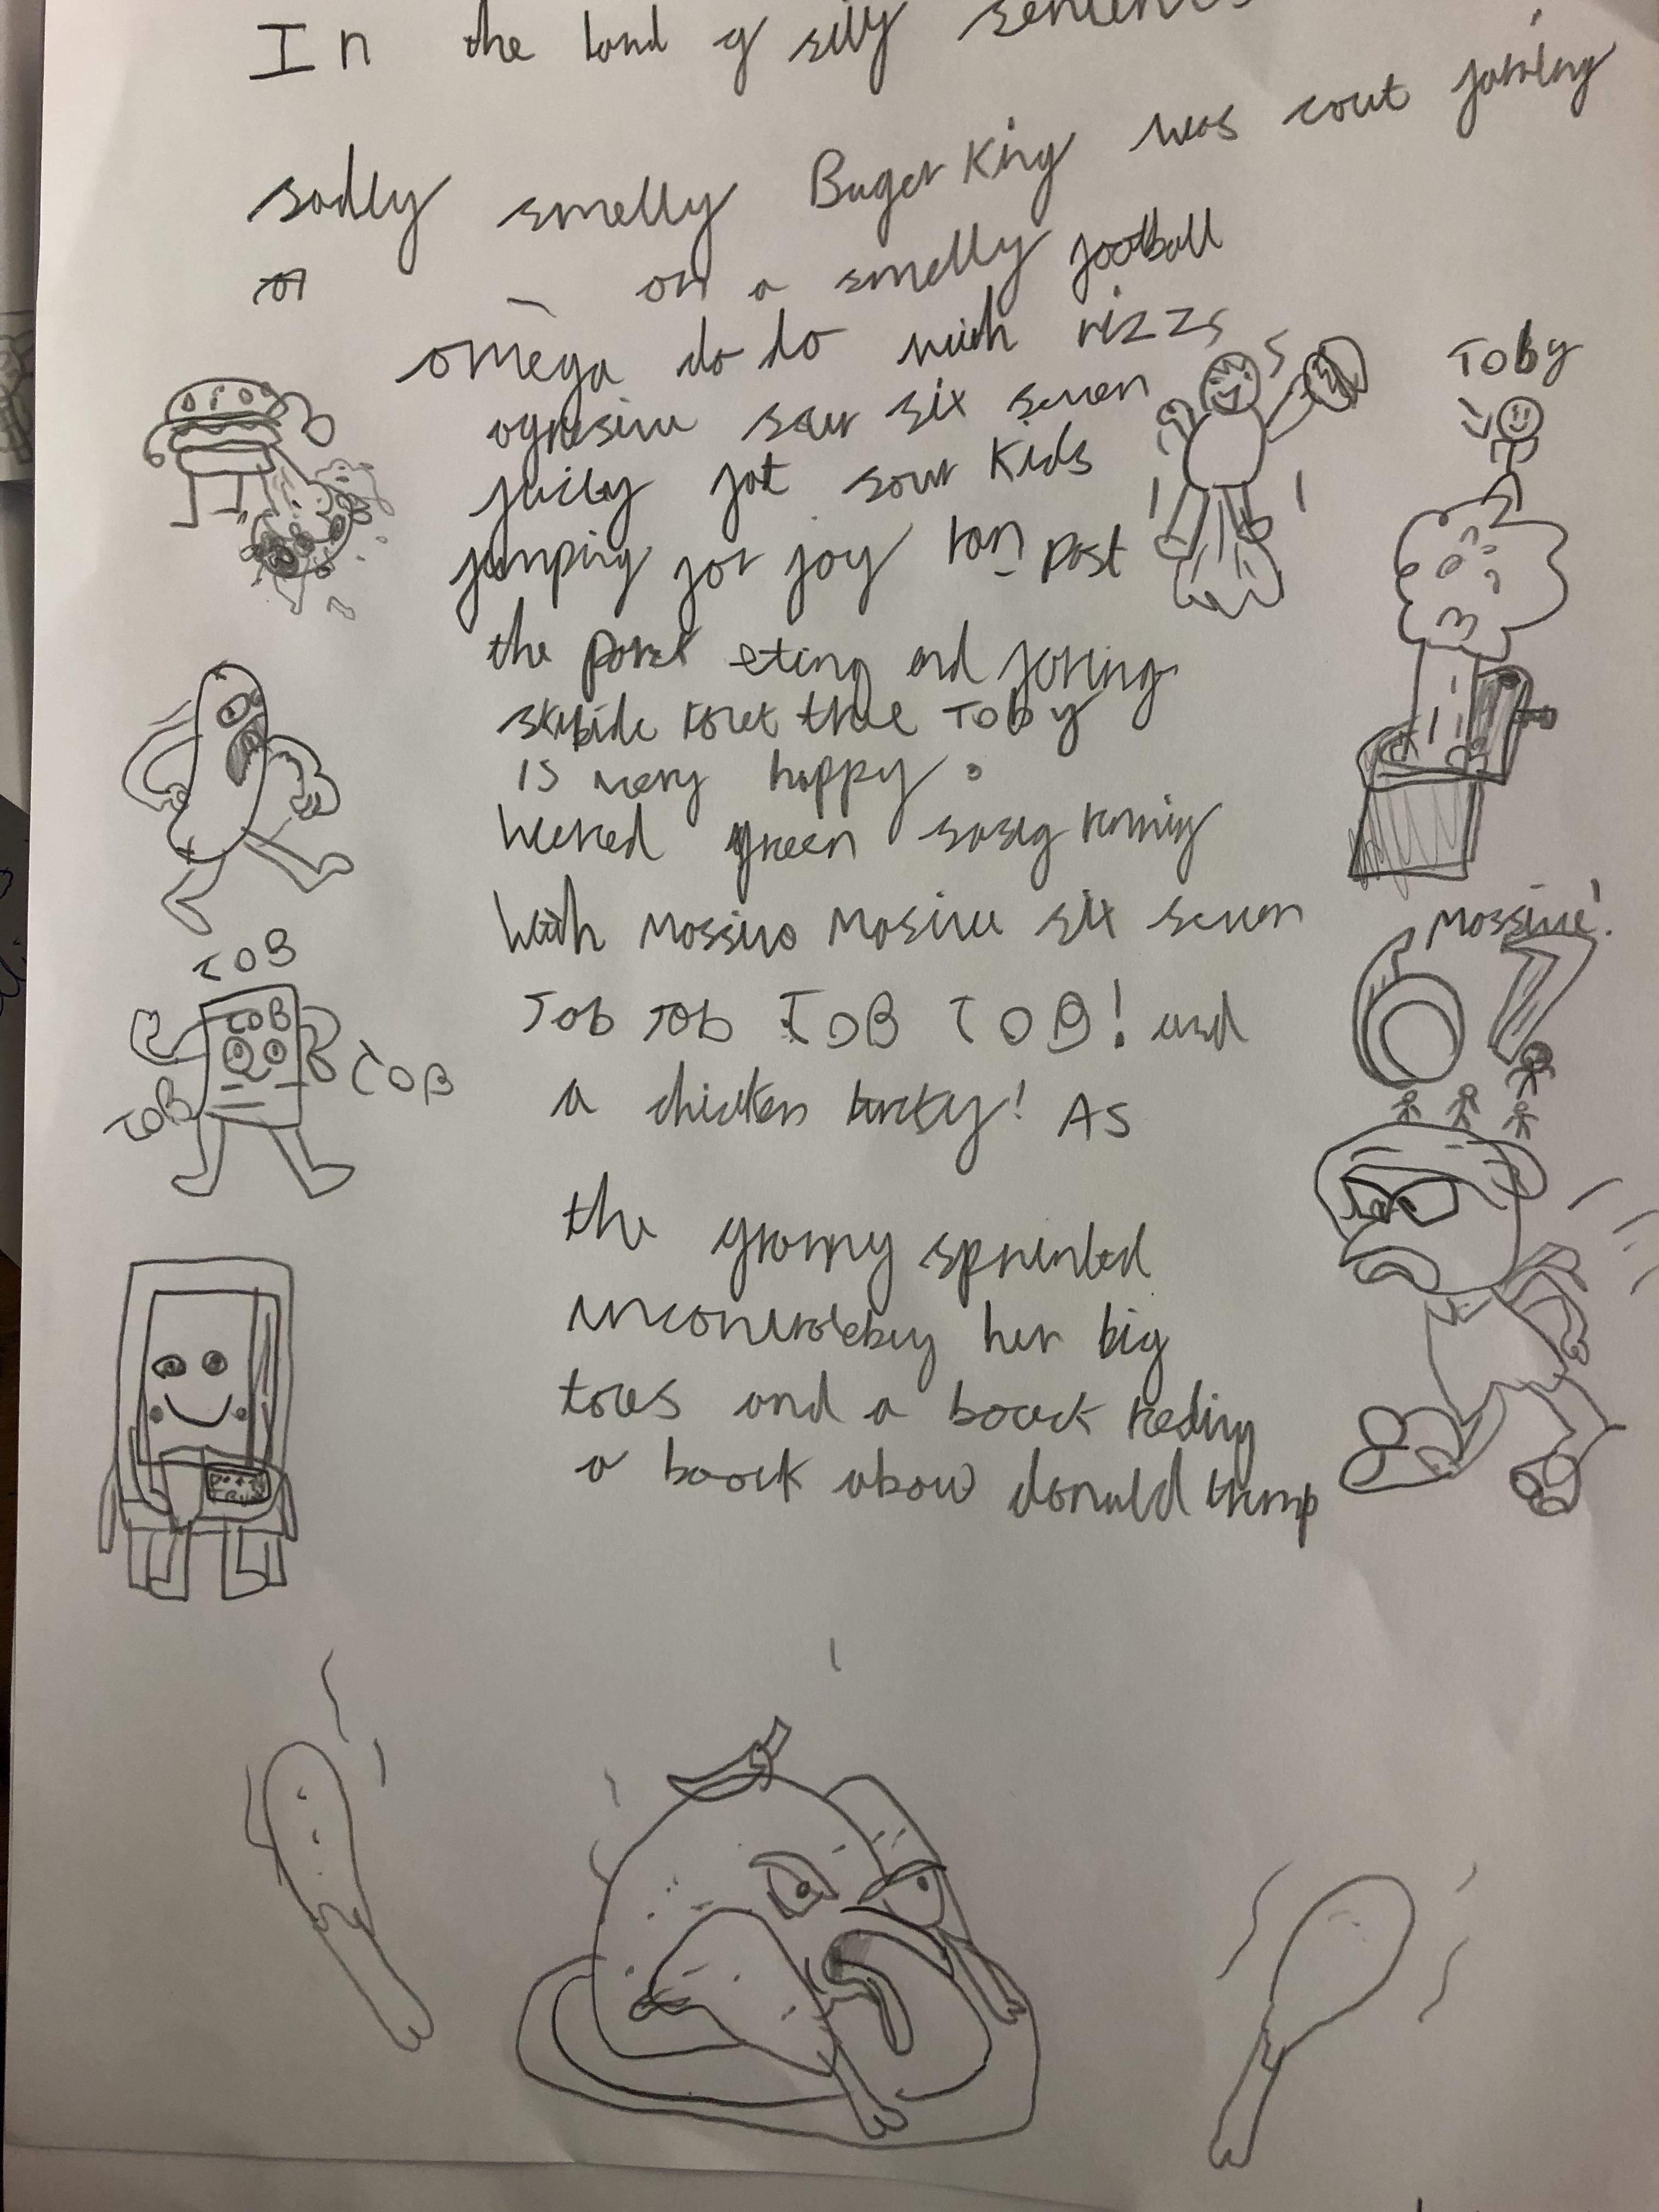 In the land of silly
sadly smelly Buger King was cout farting
on a smelly football
omega do do with rizz
agresive sour six seven
juicy fat sour Kids
jumping for joy ran past
the eting and farting
Toby
is very happy.
green runnig
With Massive Masive six seven
TOB TOB TOB TOB! and
a chicken turkey! As
the granny sprinted
her big
toes and a boock reding
a boock abow donald trump
Toby
TOB
TOB
TOB
TOB
Massive!